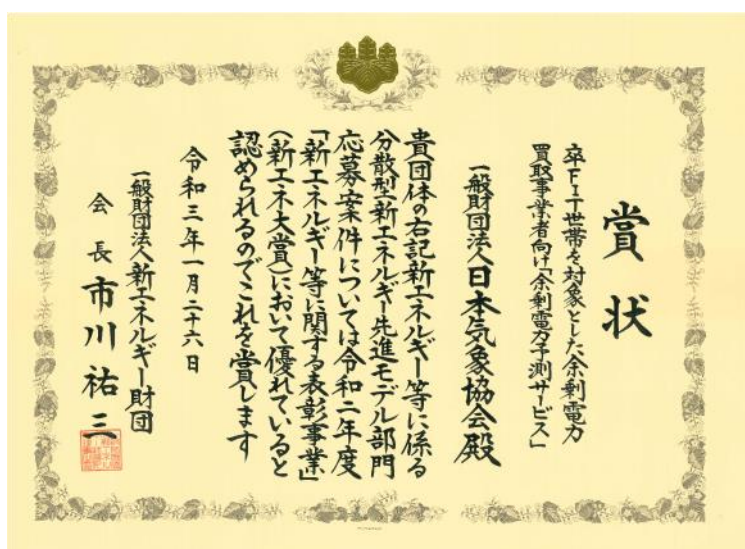 賞状
卒FIT世帯を対象とした余剰電力
買取事業者向け「余剰電力予測サービス」
一般財団法人日本気象協会殿
貴団体の右記新エネルギー等に係る
分散型新エネルギー先進モデル部門
応募案件については令和二年度
「新エネルギー等に関する表彰事業」
(新エネ大賞)において優れていると
認められるのでこれを賞します
令和三年一月二十六日
一般財団法人新エネルギー財団
会長市川祐三